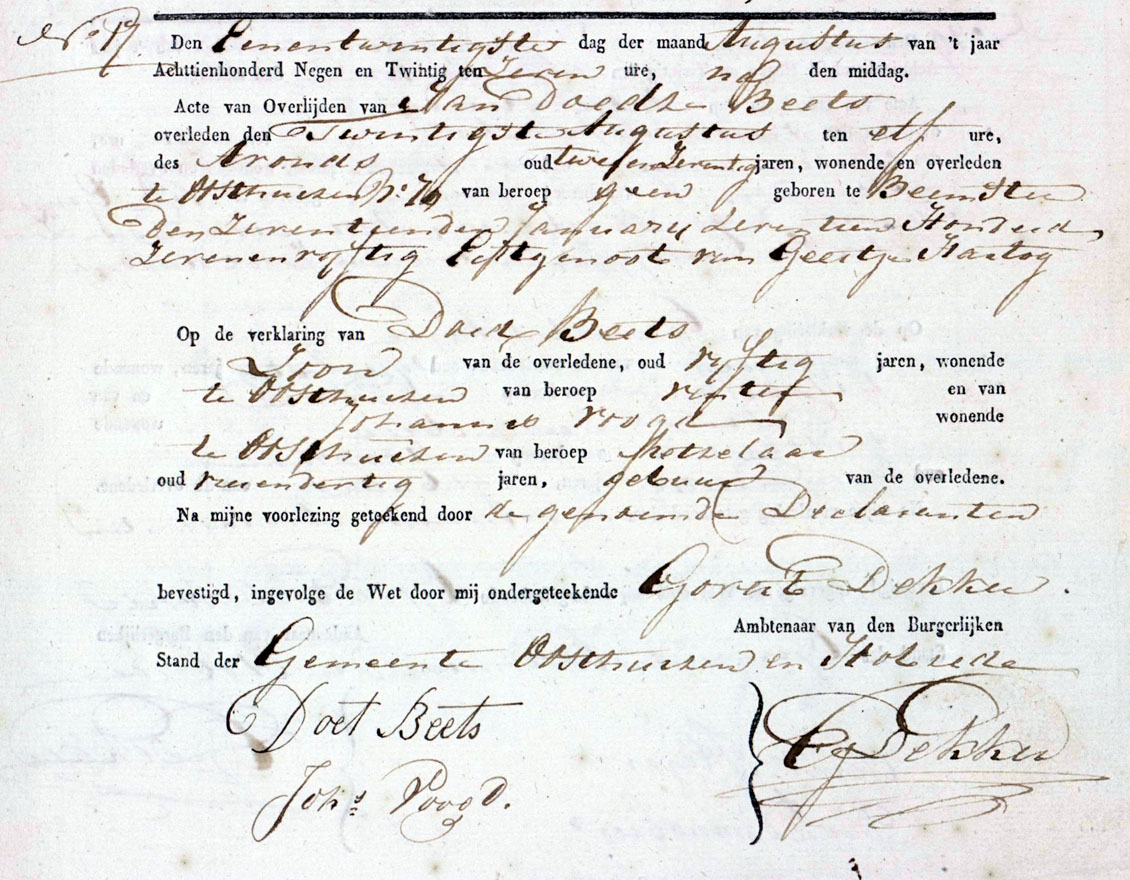 No 17 Den Eenentwintigste dag der maand Augustus van 't jaar
Achttienhonderd Negen en Twintig ten Zeven ure, na den middag.
Acte van Overlijden van Jan Doedsz Beets
overleden den Twintigste Augustus ten elf ure,
des Avonds oud twee en Zeventig jaren, wonende en overleden
te Oosthuisen No: 70 van beroep geen geboren te Beemster
Den Zeventienden January Zeventien Honderd
Zevenenvyftig Echtgenoot van Geestje Hartog
Op de verklaring van Doed Beets
Zoon van de overledene, oud vyftig jaren, wonende
te Oosthuisen van beroep rentier en van
Johannes Voogd wonende
te Oosthuisen van beroep Metselaar
oud jaren, gebuur van de overledene.
Na mijne voorlezing geteekend door de genoemde Declaranten
bevestigd, ingevolge de Wet door mij ondergeteekende Gorrit Dekker.
Ambtenaar van den Burgerlijken
Stand der Gemeente Oosthuisen en Hobrede
Doet Beets
Dekker
Johs Voogd.